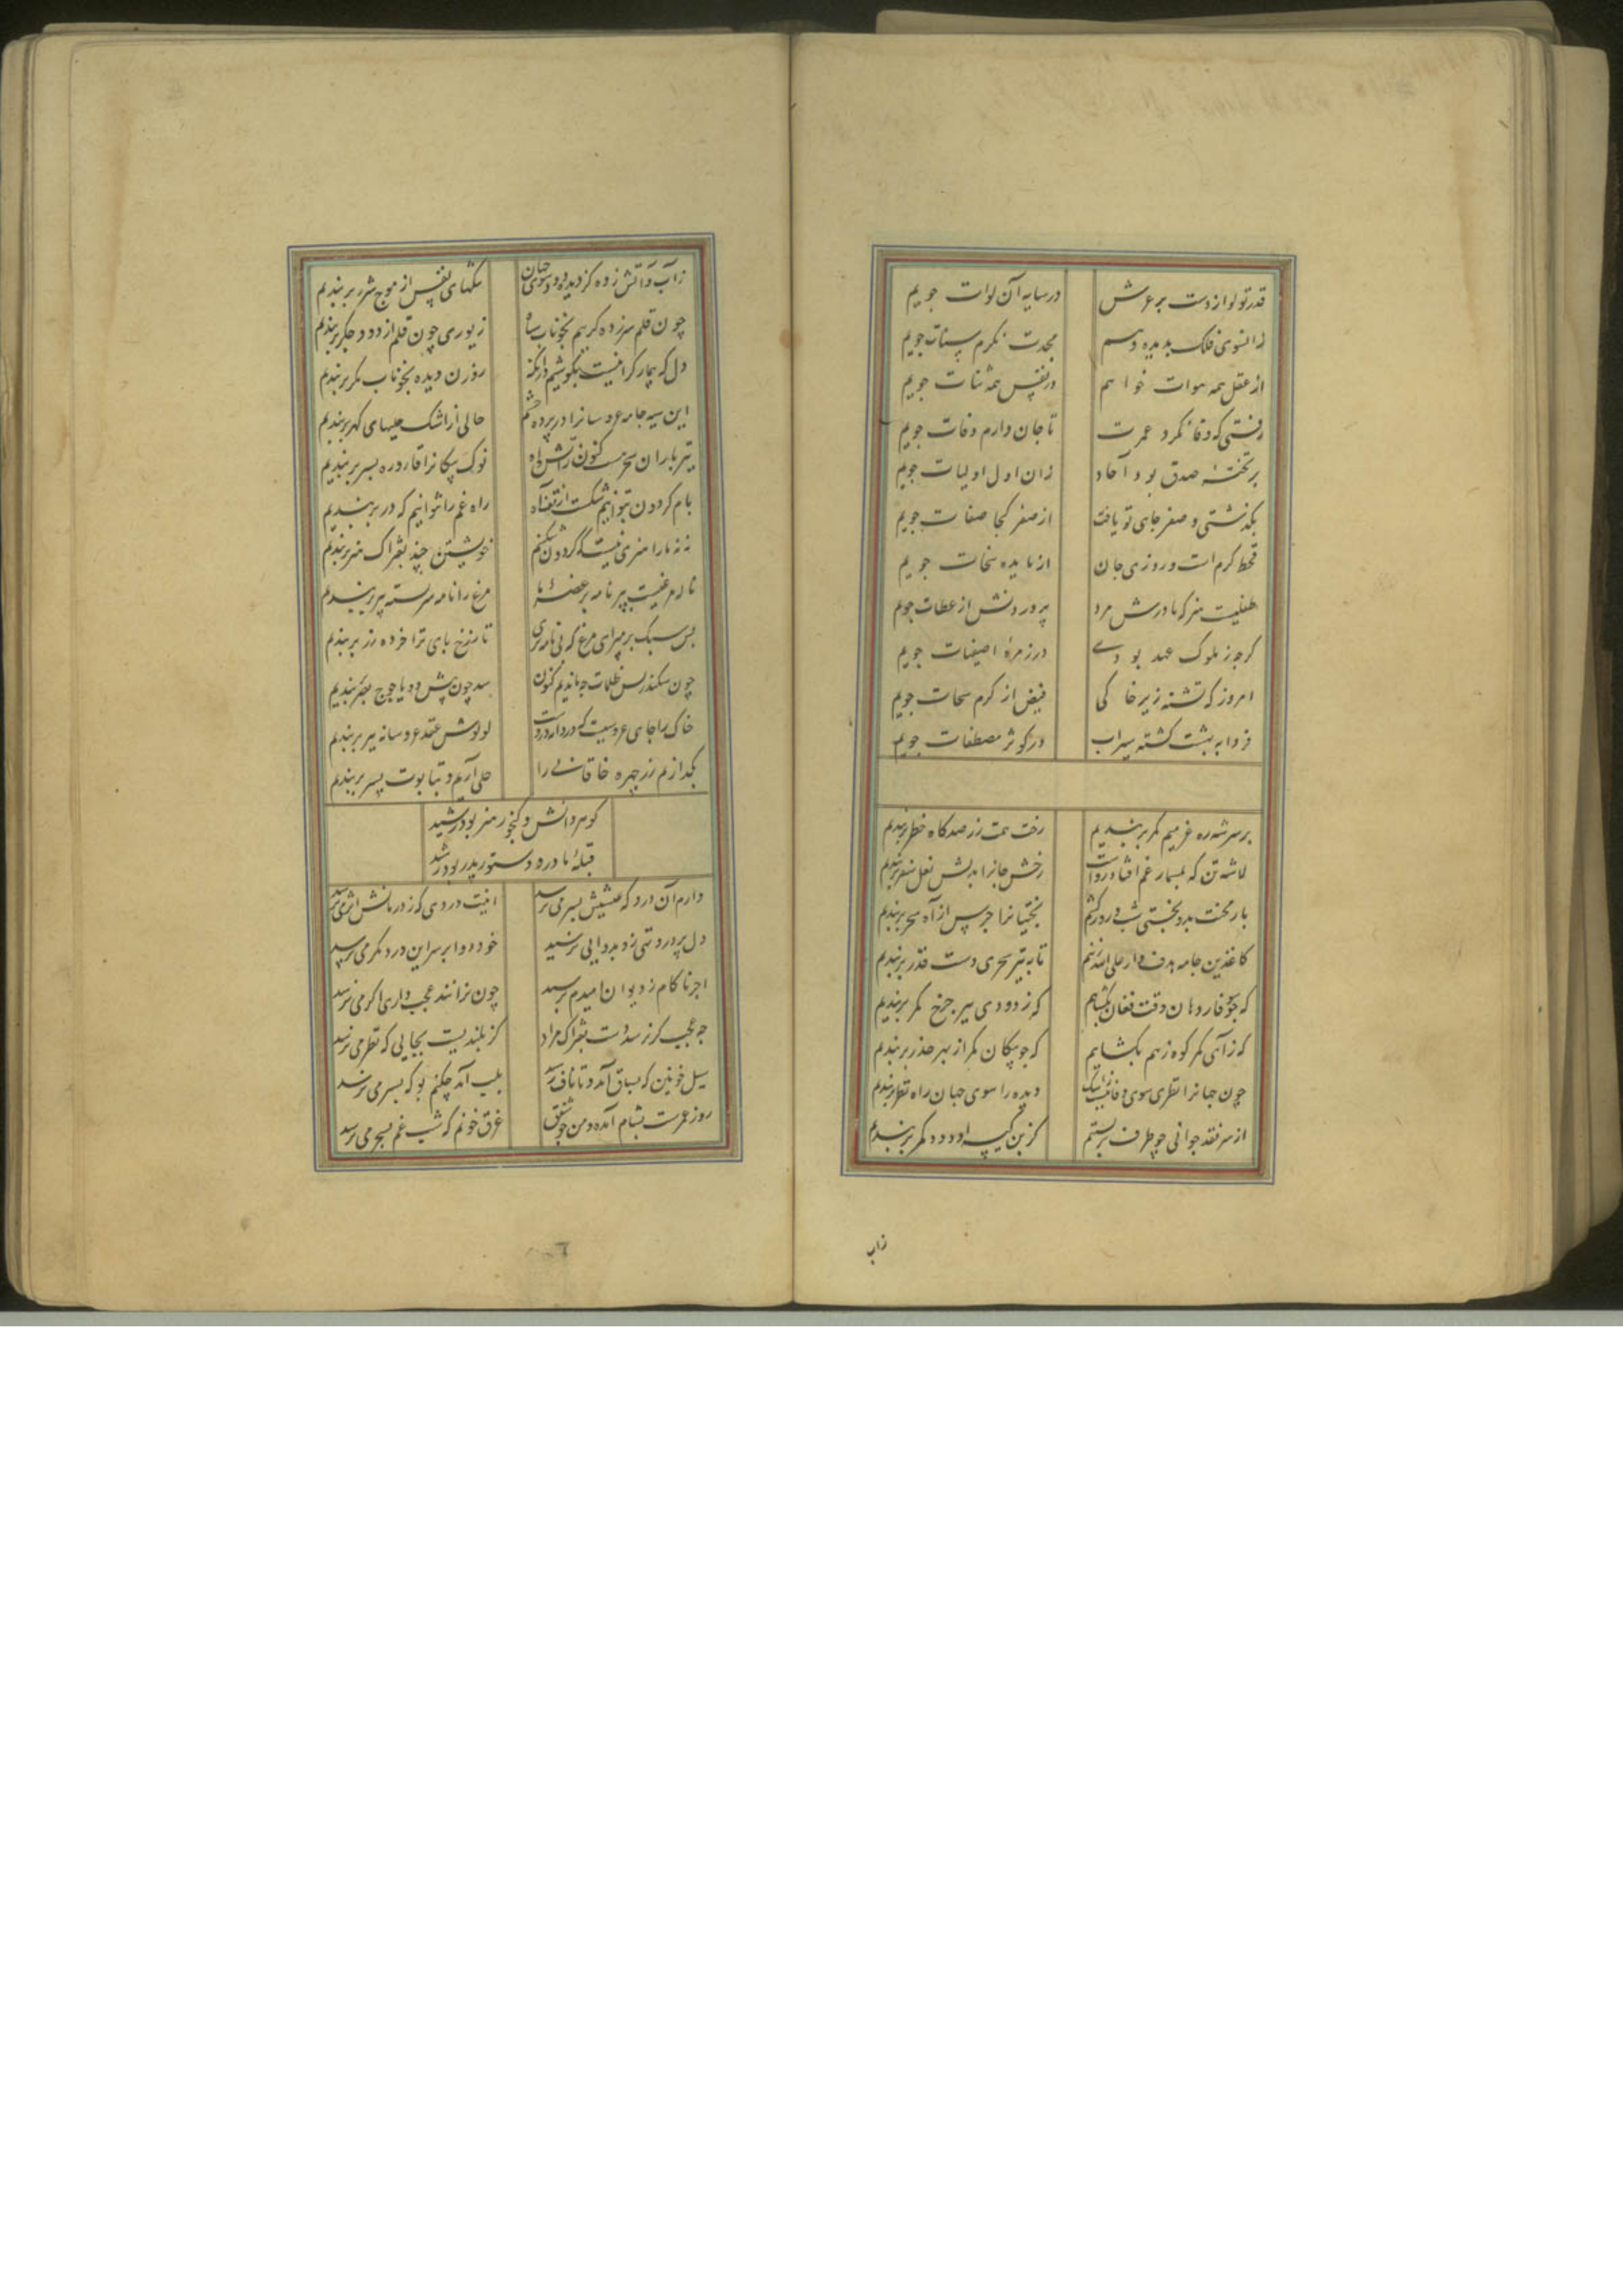 قدر تو لوا زدست بر عرش
در سایه آن لوات جویم
زانسوی فلک بدیده وهم
مجدت نکرم سنات جویم
از عقل همه هوات خواهم
در نفس همه ثنات جویم
رفتی که وفا نکرد عمرت
تا جان دارم وفات جویم
بر تخته صدق بود آحاد
زان اول اولیات جویم
بکذشتی و صفر جای تو یافت
از صفر کجا صفات جویم
قحط کرم است و روزی جان
از مایده سخات جویم
طفلیست هنر که مادرش مرد
پروردنش از عطات جویم
کرچه ز ملوک عهد بودی
در زمرهٔ اصفیات جویم
امروز که تشنه زیر خاکی
فیض از کرم سحات جویم
فردا به بهشت کشته سیراب
در کوثر مصطفات جویم
بر سر شه ره عزمیم کمر بربندیم
رخت همت ز رصدکاه خطر بربندیم
لاشه تن که بمسمار غم افتاد رواست
رخش جانرا بدلش نعل سفر بربندیم
بار محنت بدو بختی شب و روز کشیم
بختیانرا جرس از آه سحر بربندیم
کاغذین جامه هدف وار علی الله زنیم
تا به تیر سحری دست قدر بربندیم
که چو سوفار دهان وقت فغان بکشاییم
که چو پیکان کمر از بهر حذر بربندیم
که ز آهی کمر کوه ز هم بکشاییم
که ز دودی بسر چرخ کمر بربندیم
چون جهانرا نظری سوی وفا نیست ز اشک
دیده را سوی جهان راه نظر بربندیم
از سر نقد جوانی چو طرف بربستیم
کز بن کیسه او درد مکر بربندیم
زاب
زاب و آتش زده کز دیده رود سوی دهان
تنکهای نفس از موج شرر بربندیم
چون قلم سرزده کرییم بخوناب سیاه
زیوری چون قلم از دود جکر بربندیم
دل که بیمار کرانیست بکوشیم در آنکه
روزن دیده بخوناب مکر بربندیم
این سیه جامه عروسانرا در پرده چشم
حالی از اشک حلیهای کهر بربندیم
تیر باران سحر هست کنون ز آتش آه
نوک پیکانرا قاروره بسر بربندیم
بام کردون بتوانیم شکست از تف آه
راه غم را نتوانیم که در بربندیم
نه نه ما را هنری نیست که کردون شکنیم
خویشتن چند بفتراک هنر بربندیم
ناله مرغیست بپر نامه بر غصهٔ ما
مرغ را نامه سربسته بپر بربندیم
بس سبک برمپر ای مرغ که نی نامه بری
تا ز رخ بای ترا خرده زر بربندیم
چون سکندر پس ظلمات چه ماندیم کنون
سد چون پیش در یاجوج بصر بربندیم
خاک را جای عروسیست که دردانه دروست
لولوش عقد عروسانه ببر بربندیم
بکدازیم زر چهره خاقانی را
حلی آریم و بتابوت پسر بربندیم
کوهر دانش و کنجور هنر بود رشید
قبلهٔ مادر و دستور پدر بود رشید
دارم آن درد که عیسیش بسر می نرسد
اینت دردی که ز درمانش اثر می نرسد
دل پر درد تهی رو بدوایی نرسید
خود دوا بر سر این درد مکر می نرسد
اجر ناکام ز دیوان امیدم نرسید
چون نرانند عجب داری اکر می نرسد
چه عجب کر نرسد دست بفتراک مراد
کز بلندیست بجایی که نظر می نرسد
سیل خونین که بساق آمد و تا ناف رسید
بلب آمد چکنم بو که بسر می نرسد
روز عمرست بشام آمده و من چو شفق
غرق خونم که شب غم بسحر می نرسد